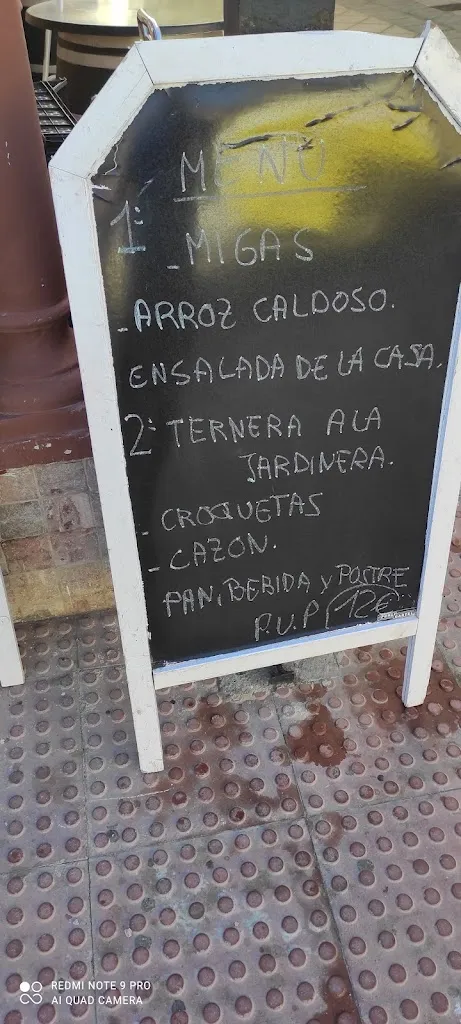 MENÚ
1º
- MIGAS
- ARROZ CALDOSO.
ENSALADA DE LA CASA.
2º TERNERA A LA
JARDINERA.
- CROQUETAS
- CAZON.
PAN, BEBIDA y POSTRE
P.V.P 12€
REDMI NOTE 9 PRO
AI QUAD CAMERA